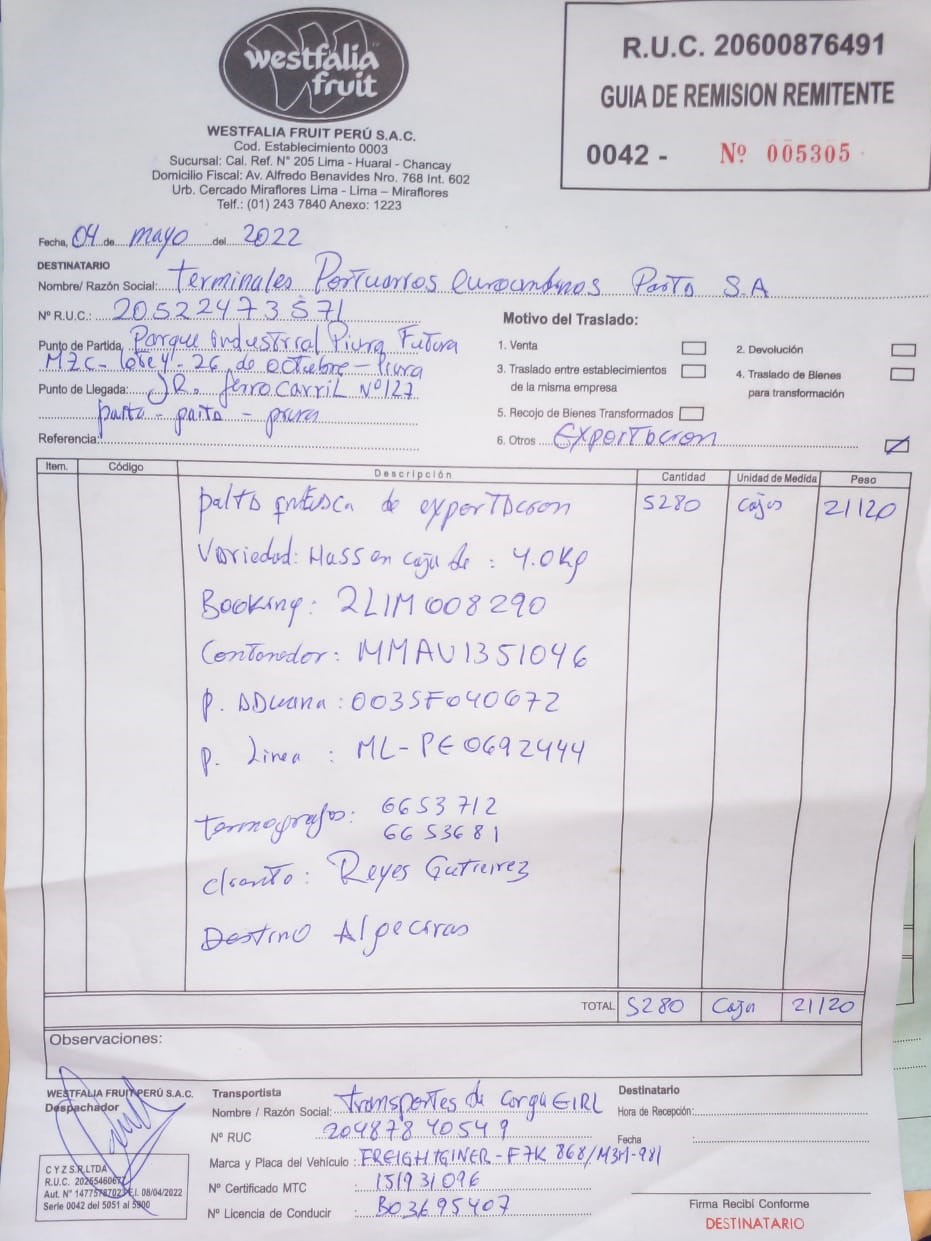 westfalia
fruit
WESTFALIA FRUIT PERÚ S.A.C.
Cod. Establecimiento 0003
Sucursal: Cal. Ref. N° 205 Lima - Huaral - Chancay
Domicilio Fiscal: Av. Alfredo Benavides Nro. 768 Int. 602
Urb. Cercado Miraflores Lima - Lima – Miraflores
Telf.: (01) 243 7840 Anexo: 1223
R.U.C. 20600876491
GUIA DE REMISION REMITENTE
0042 - Nº 005305
Fecha, 04 de mayo del 2022
DESTINATARIO
Nombre/ Razón Social: Terminales Portuarios Euroandinos Paita S.A
Nº R.U.C.: 20522473571
Punto de Partida, Parque industrial Piura Futura
MZC - lote y - 26 de octubre - Piura
Punto de Llegada: JR. ferrocarril Nº 127
paita - paita - piura
Referencia:
Motivo del Traslado:
1. Venta
2. Devolución
3. Traslado entre establecimientos
de la misma empresa
4. Traslado de Bienes
para transformación
5. Recojo de Bienes Transformados
6. Otros Exportacion
Item. Código Descripción Cantidad Unidad de Medida Peso
palta fresca de exportacion 5280 Cajas 21120
Variedad: Hass en caja de : 4.0Kg
Booking: 2LIM008290
Contenedor: MMAU1351046
P. ADuana: 003SF040672
P. Linea : ML-PE0692444
termografos: 6653712
6653681
cliente: Reyes Gutierrez
Destino Algeciras
TOTAL 5280 Caja 21120
Observaciones:
WESTFALIA FRUIT PERÚ S.A.C.
Despachador
C Y Z S.R.LTDA
Serie 0042 del 5051 al 5900
Transportista
Nombre / Razón Social: transportes de carga EIRL
Nº RUC 20487840549
Marca y Placa del Vehículo : FREIGHTGINER - F7K 868/M3M-981
Nº Certificado MTC 151931096
Nº Licencia de Conducir B03695407
Destinatario
Hora de Recepción:
Fecha :
Firma Recibí Conforme
DESTINATARIO